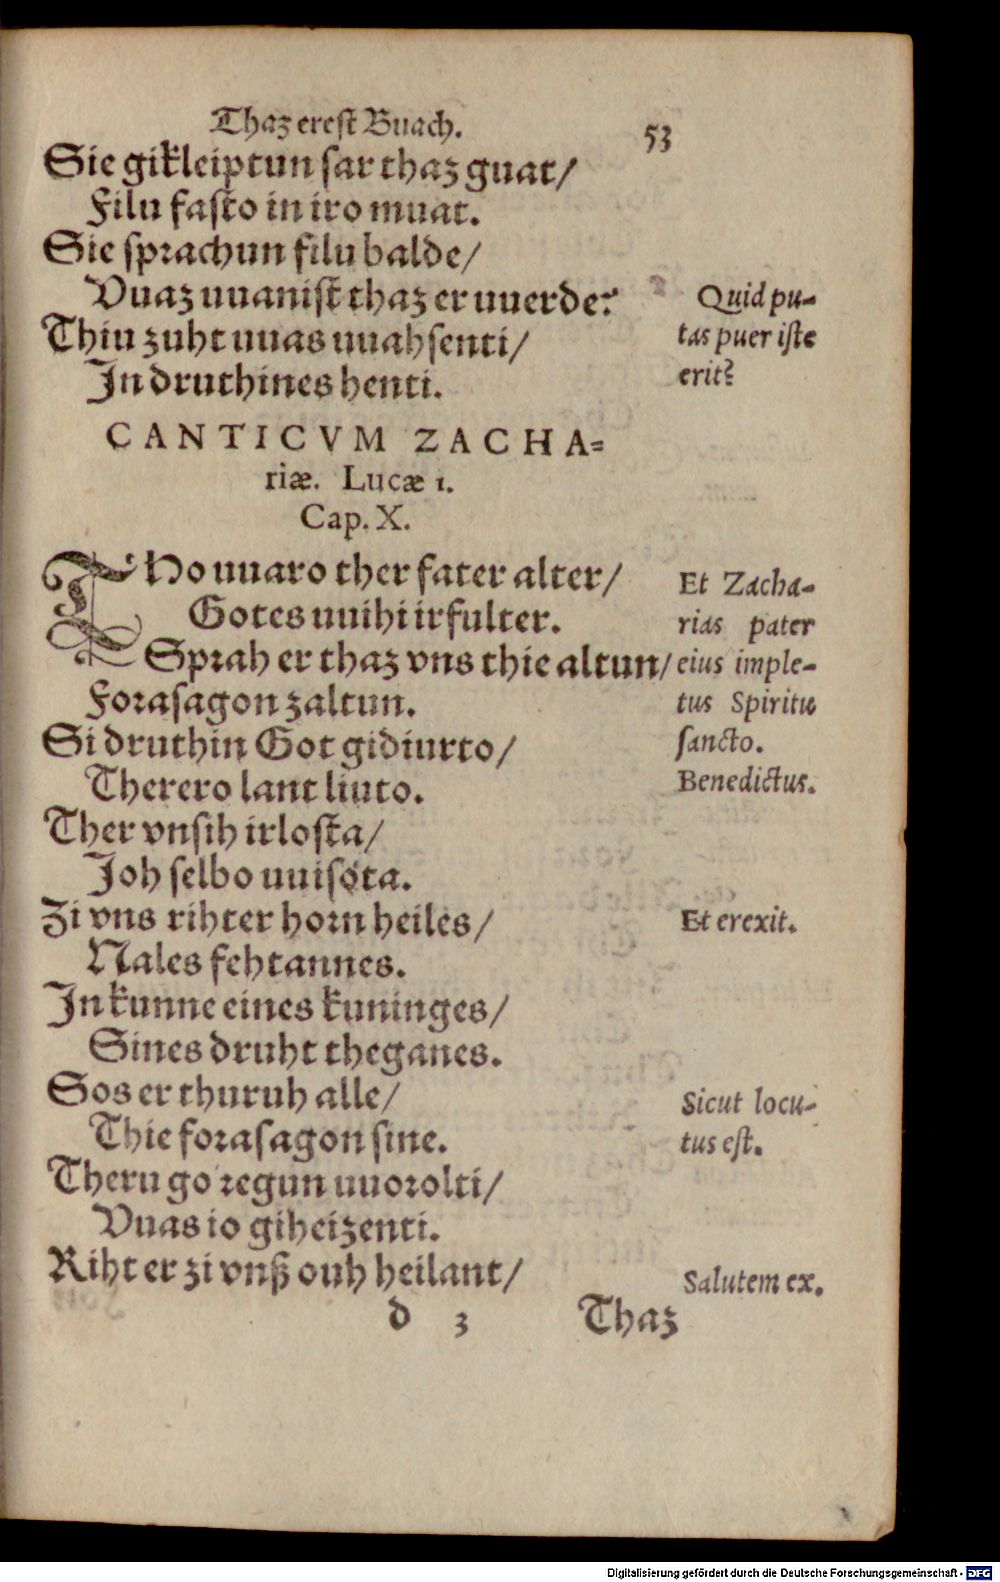 Thaz erest Buach. 53
Sie gikleiptun sar thaz guat/
Filu fasto in iro muat.
Sie sprachun filu balde/
Vuaz uuanist thaz er uuerde?
Quid pu-
tas puer iste
erit?
Thiu zuht uuas uuahsenti/
In druthines henti.
CANTICVM ZACHA-
riæ. Lucæ 1.
Cap. X.
THo uuaro ther fater alter/
Gotes uuihi irfulter.
Sprah er thaz vns thie altun/
Forasagon zaltun.
Et Zacha-
rias pater
eius imple-
tus Spiritu
sancto.
Si druthin Got gidiurto/
Therero lant liuto.
Benedictus.
Ther vnsih irlosta/
Joh selbo uuisota.
Zi vns rihter horn heiles/
Et erexit.
Nales fehtannes.
In kunne eines kuninges/
Sines druht theganes.
Sos er thuruh alle/
Thie forasagon sine.
Sicut locu-
tus est.
Theru go regun uuorolti/
Vuas io giheizenti.
Riht er zi vnß ouh heilant/
Salutem ex.
d 3 Thaz
Digitalisierung gefördert durch die Deutsche Forschungsgemeinschaft - DFG